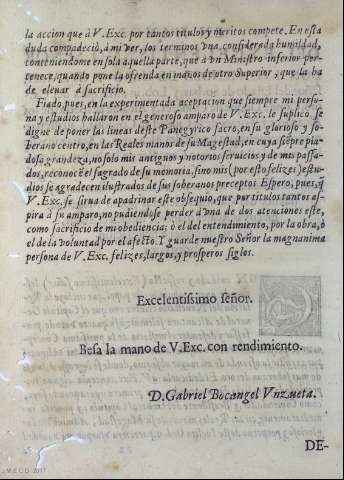 la accion que à V. Exc. por tantos titulos y meritos compete. En esta
duda compadeciò, à mi ver, los terminos vna considerada humildad,
conteniendome en sola aquella parte, que à vn Ministro inferior per-
tenece, quando pone la ofrenda en manos de otro Superior, que la ha
de eleuar à sacrificio.
Fiado, pues, en la experimentada aceptacion que siempre mi perso-
na y estudios hallaron en el generoso amparo de V.Exc. le suplico se
digne de poner las lineas deste Panegyrico sacro, en su glorioso y so-
berano centro, en las Reales manos de su Magestad, en cuya sẽpre pia-
dosa grandeza, no solo mis antiguos y notorios seruicios y de mis passa-
dos, reconocẽ el sagrado de su memoria, sino mis (por esto felizes) estu-
dios se agradecen ilustrados de sus soberanos preceptos. Espero, pues, q̃
V. Exc. se sirua de apadrinar este obsequio, que por titulos tantos as-
pira à su amparo, no pudiendose perder à vna de dos atenciones este,
como sacrificio de mi obediencia; ò el del entendimiento, por la obra, ò
el de la voluntad por el afecto. Y guarde nuestro Señor la magnanima
persona de V. Exc. felizes, largos, y prosperos siglos.
Excelentissimo señor.
Besa la mano de V.Exc. con rendimiento.
D. Gabriel Bocangel Vnzueta.
DE-
M.E.C.D. 2017